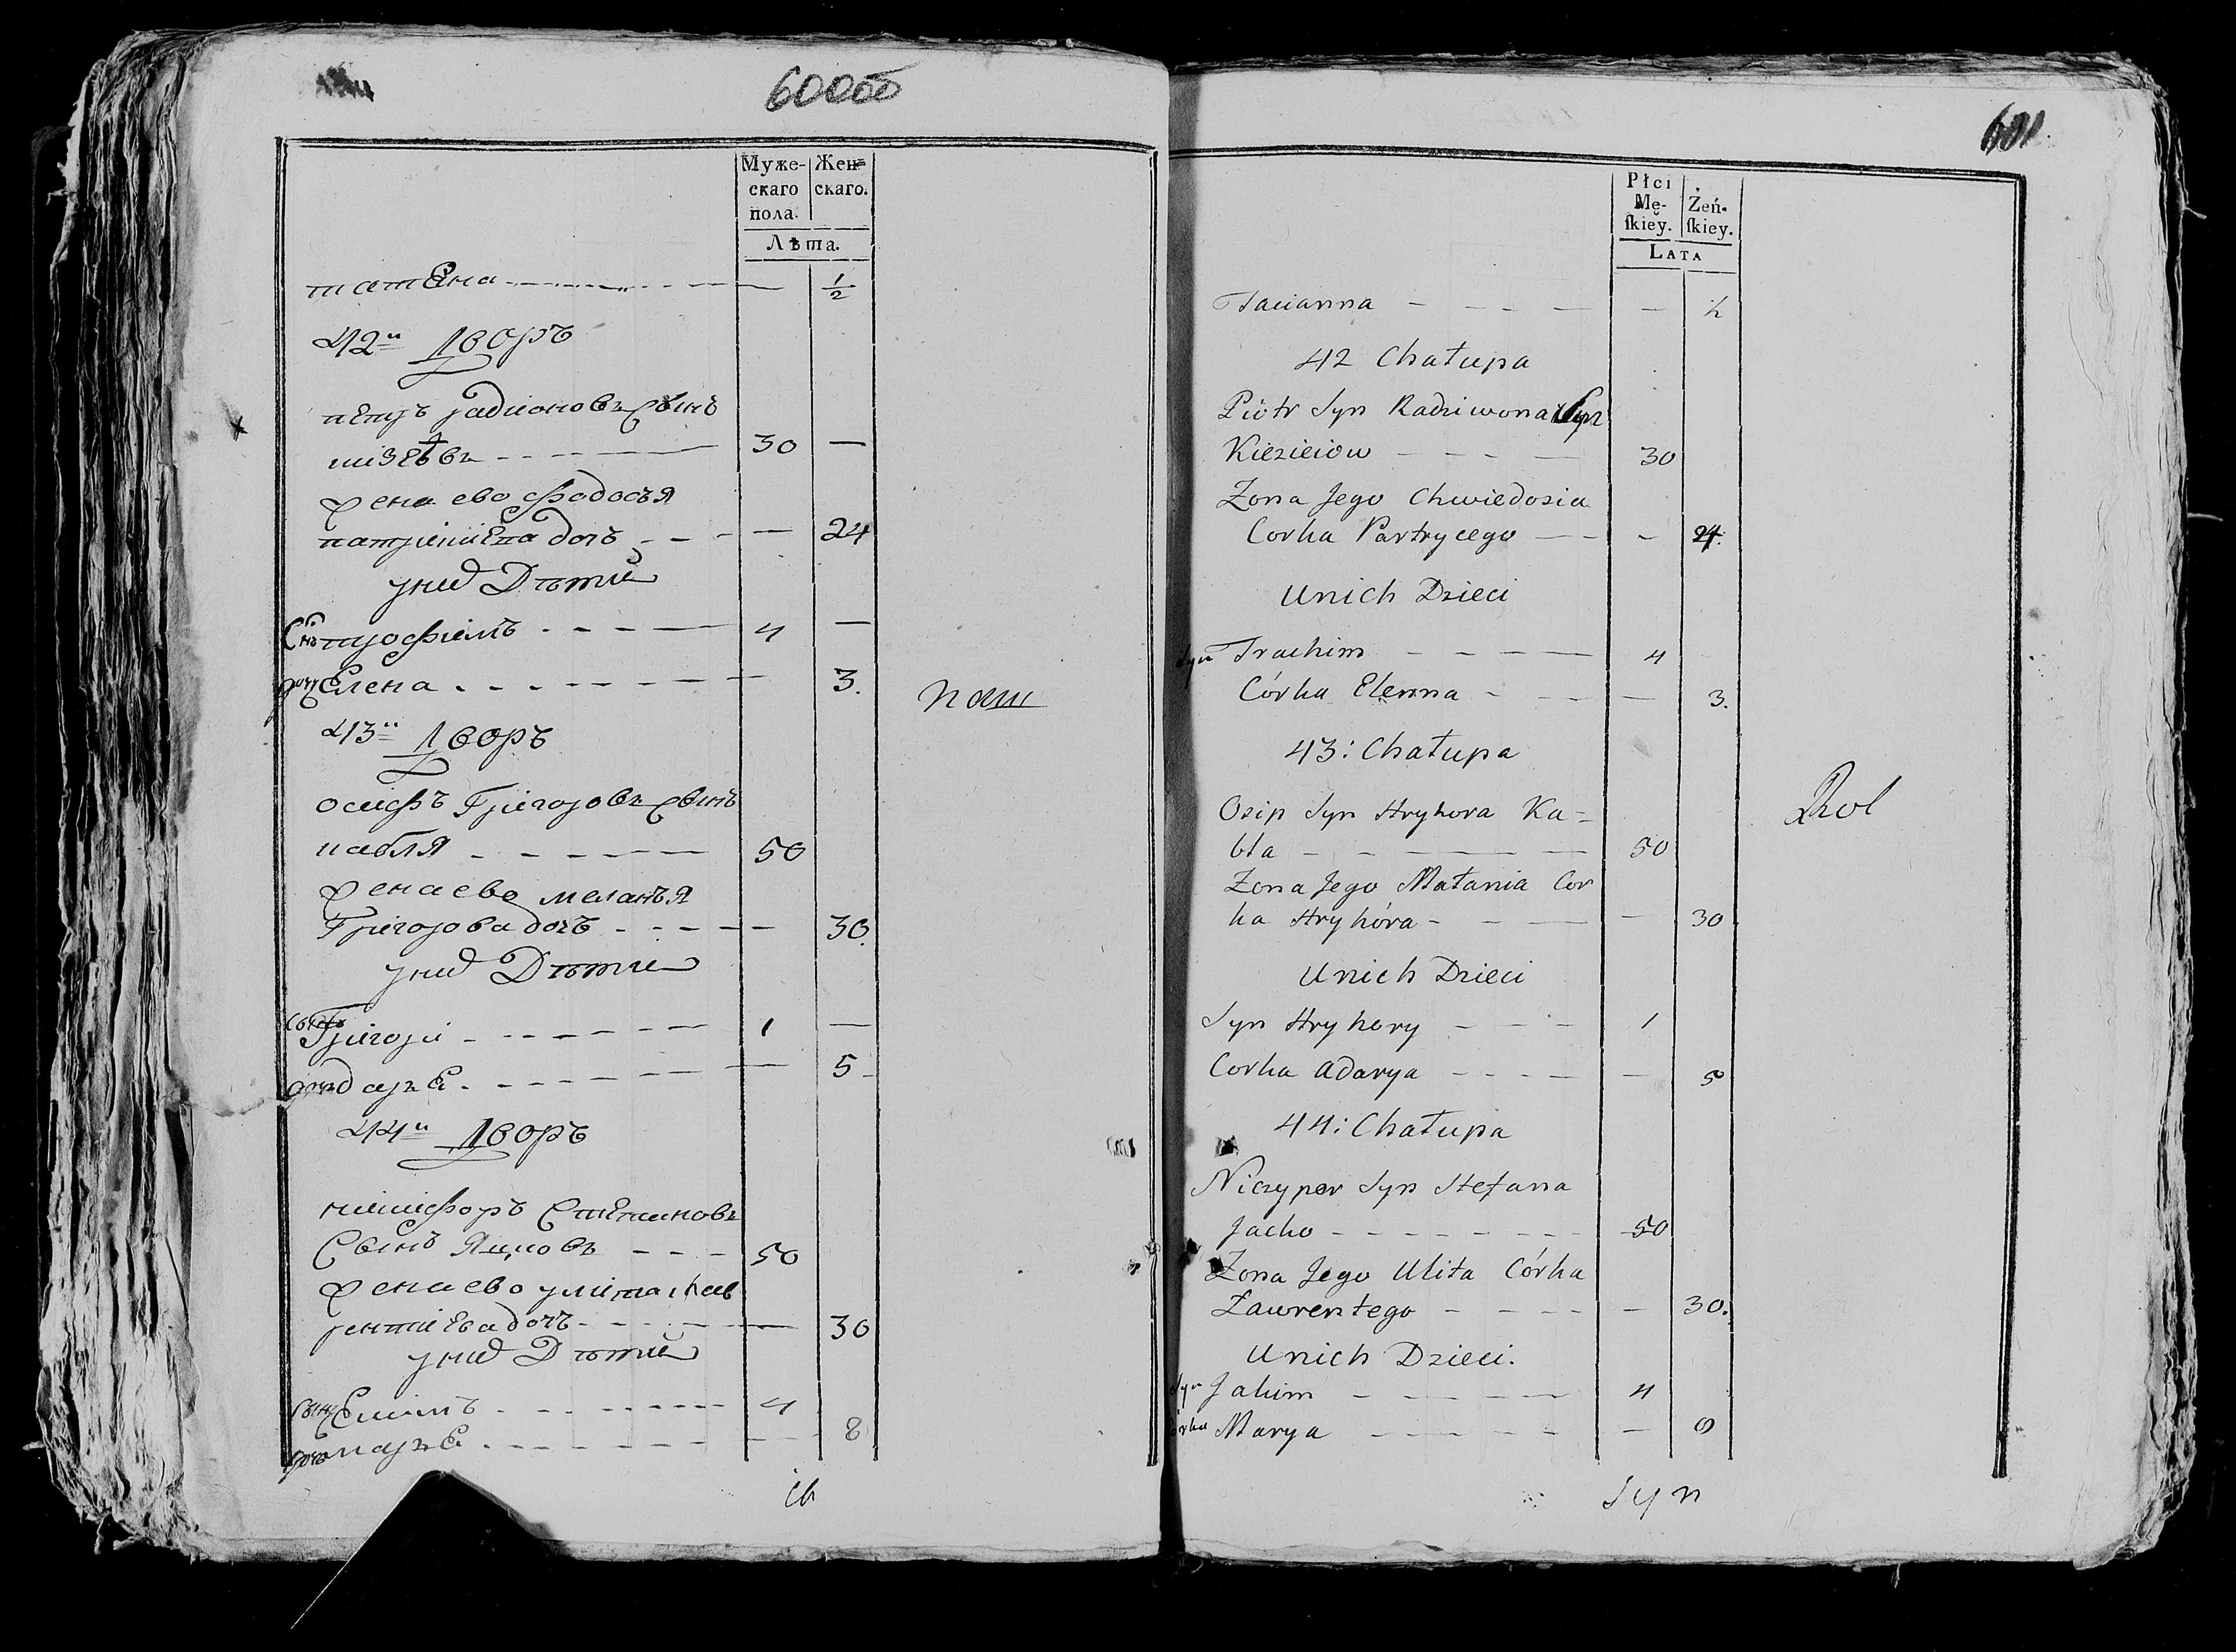 60000
Муже-
скаго
пола.
Жен=
скаго.
Лѣта.
татЕна - - - — 1/2
42й Дворъ
петръ радионовъ сынъ
кизѣвъ - - - — 30 —
жена ево Федосъя
патрикиева дочъ - - - — 24
у них Дѣтей
Сынъ трофимъ - - - — 4 —
дочь Елена - - - — 3.
43й Дворъ
осифъ Григоровъ сынъ
кабля - - - — 50
жена ево меланъя
Григорова дочъ - - - — 30.
у них Дѣтей
сынъ Григори - - - — 1 —
дочь даръЕ - - - — 5
44й Дворъ
никифоръ Степановъ
Сынъ Яцковъ - - - 50
жена ево улита лав
рентиева дочъ - - - — 30
у них Дѣтей
сынъ Екимъ - - - 4
дочь маръЕ - - - — 8
наш
601.
Płci
Mę-
ſkiey.
Żeń-
ſkiey.
LATA
Tacianna - - - — ½
42 Chałupa
Piotr Syn Radziwona Syn
Kiezieiow - - - — 30
Zona Jego Chwiedosia
Corka Partrycego — - - 24.
Unich Dzieci
Syn Trachim - - - — 4
Córka Elenna - - - — 3.
43: Chałupa
Osip Syn Hryhora Ka=
bla - - - — 50
Zona Jego Małania Cor
ka Hryhóra - - - — 30
Unich Dzieci
Syn Hryhory - - - 1
Corka Adarya - - - — 5
44: Chałupa
Niczyper Syn Stefana
Jacko - - - 50
Zona Jego Ulita Córka
Ławrentego - - - — 30.
Unich Dzieci.
Syn Jakim - - - — 4
Córka Marya - - - — 8
Syn